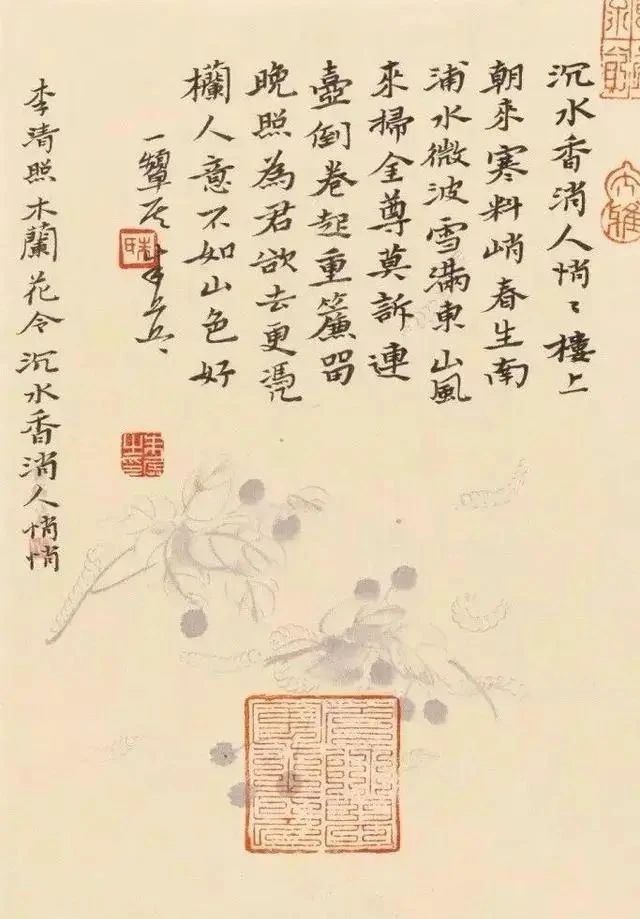 沉水香消人悄〻樓上
朝來寒料峭春生南
浦水微波雪滿東山風
來掃全尊莫訴連
壺倒卷起重簾留
晚照為君欲去更憑
欄人意不如山色好
一
李清照木蘭花令沉水香消人悄悄
大雅